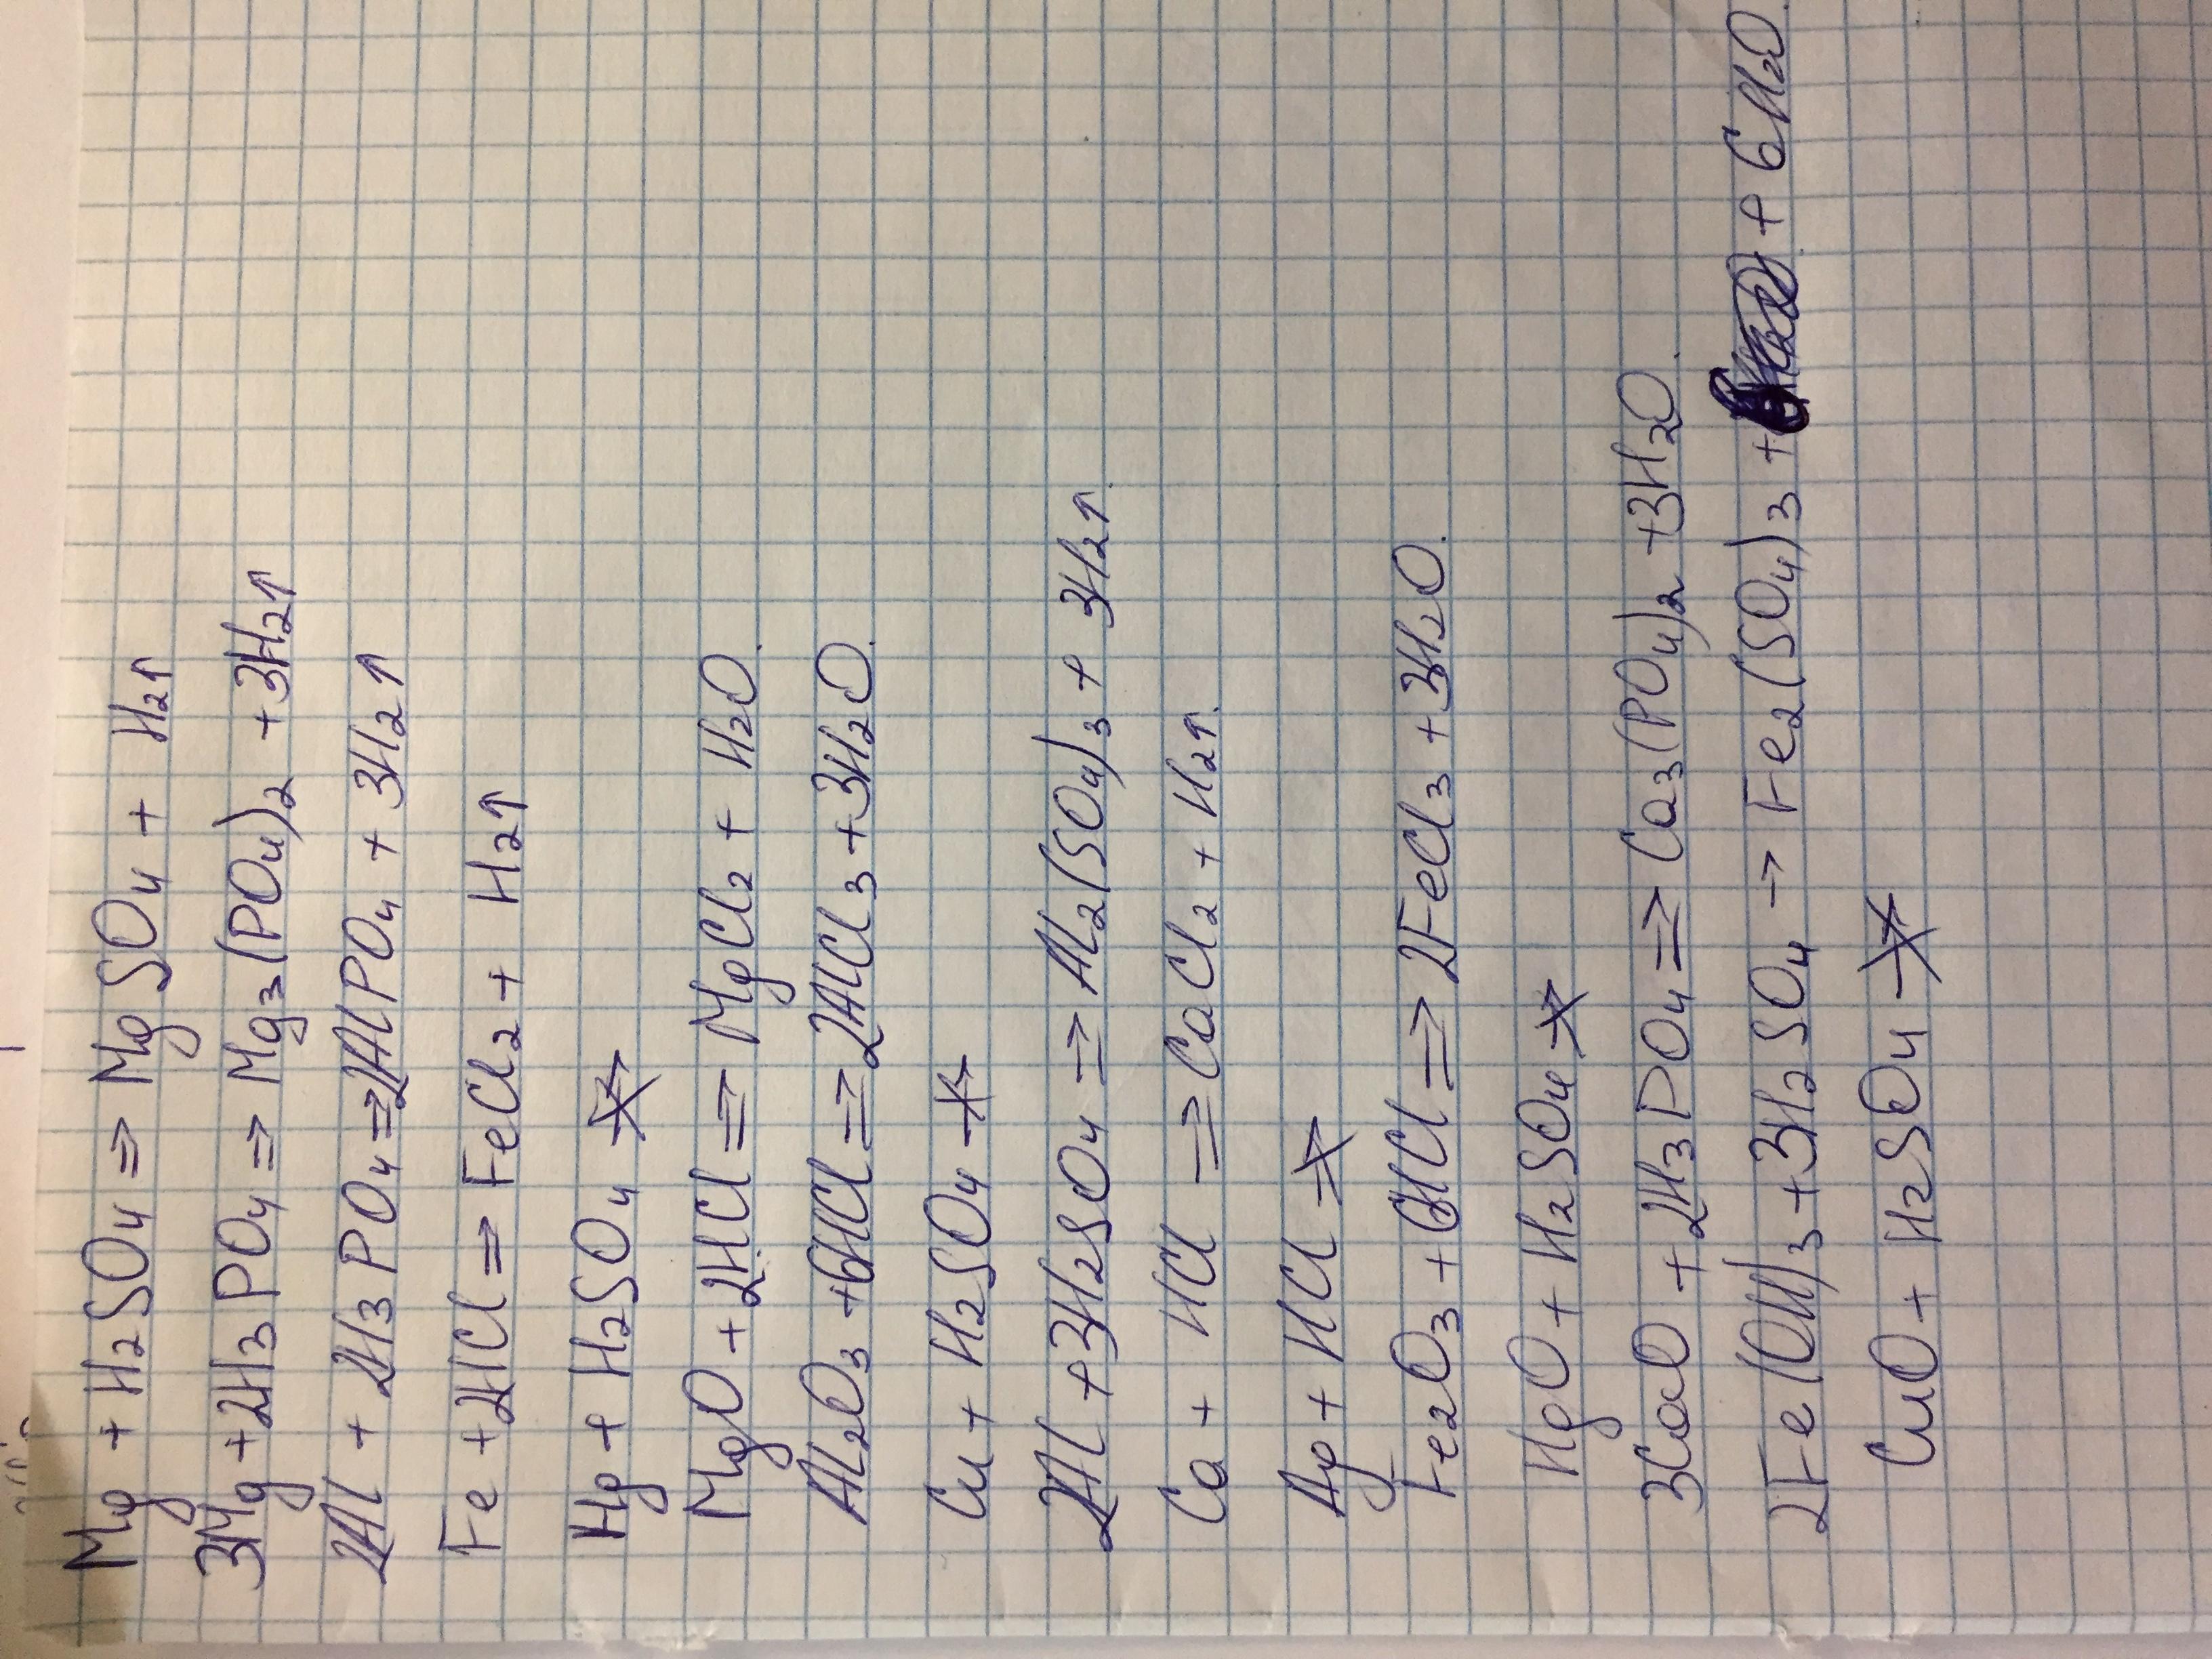 Mg + H₂SO₄ ⇒ MgSO₄ + H₂↑
3Mg + 2H₃PO₄ ⇒ Mg₃(PO₄)₂ + 3H₂↑
2Al + 2H₃PO₄ ⇒ 2AlPO₄ + 3H₂↑
Fe + 2HCl ⇒ FeCl₂ + H₂↑
Hg + H₂SO₄ ⇏
MgO + 2HCl ⇒ MgCl₂ + H₂O.
Al₂O₃ + 6HCl ⇒ 2AlCl₃ + 3H₂O.
Cu + H₂SO₄ ↛
2Al + 3H₂SO₄ ⇒ Al₂(SO₄)₃ + 3H₂↑.
Ca + HCl ⇒ CaCl₂ + H₂↑.
Ag + HCl ⇏
Fe₂O₃ + 6HCl ⇒ 2FeCl₃ + 3H₂O.
HgO + H₂SO₄ ⇏
3CaO + 2H₃PO₄ ⇒ Ca₃(PO₄)₂ + 3H₂O.
2Fe(OH)₃ + 3H₂SO₄ → Fe₂(SO₄)₃ + + 6H₂O.
CuO + H₂SO₄ ↛